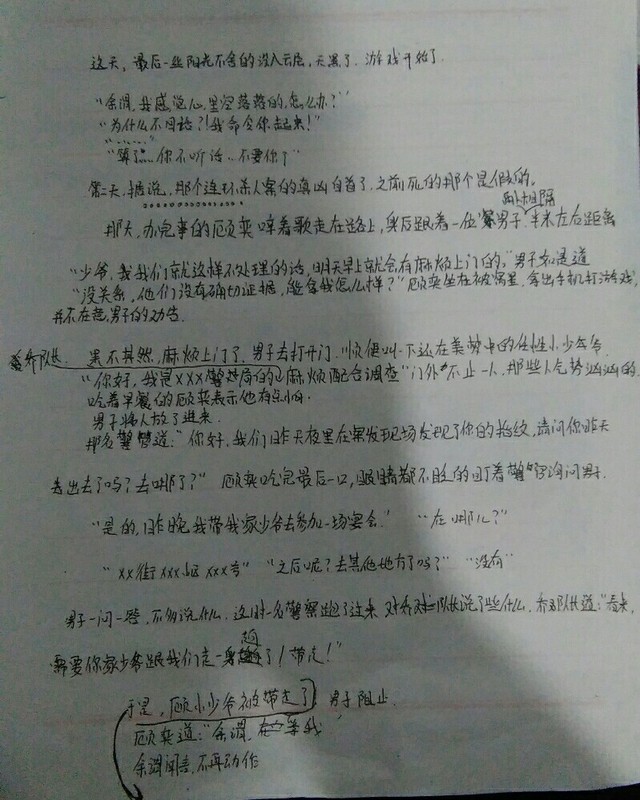 这天，最后一些阳光不舍的没入云层，天黑了，游戏开始了。
“余澜，我感觉心里空落落的，怎么办？”
“为什么不回话？！我命令你起来！”
“……”
“算了…你不听话…不要你了”
第二天，据说，那个连环杀人案的真凶自首了，之前死的那个是假的。
两米距离
那天，办完事的顾奕哼着歌走在路上，身后跟着一位男子，半米左右距离
“少爷，我们就这样不处理的话，明天早上就会有麻烦上门的。”男子如是道
“没关系，他们没有确切证据，能拿我怎么样？”顾奕坐在被窝里，拿出手机打游戏，
并不在意男子的劝告。
乔队长 果不其然，麻烦上门了，男子去打开门，顺便叫一下还在美梦中的任性小少爷
“你好，我是XXX警局的，麻烦配合调查”门外不止一人，那些人气势汹汹的
吃着早餐的顾奕表示他有点怕。
男子将人放了进来
那名警官道：“你好，我们昨天夜里在案发现场发现了你的指纹，请问你昨天
去出去了吗？去哪了？”顾奕吃完最后一口，眼睛都不眨的盯着警官询问男子
“是的，昨晚我带我家少爷去参加一场宴会。”“在哪儿？”
“XX街XXX区XXX号”“之后呢？去其他地方了吗？”“没有”
男子一问一答，不多说什么，这时一名警察跑了过来，对乔队长说了些什么，乔队长道：“看来，
需要你家少爷跟我们走一趟了！带走！”
于是，顾小少爷被带走了 男子阻止
顾奕道：“余澜，等我”
余澜闻言，不再动作